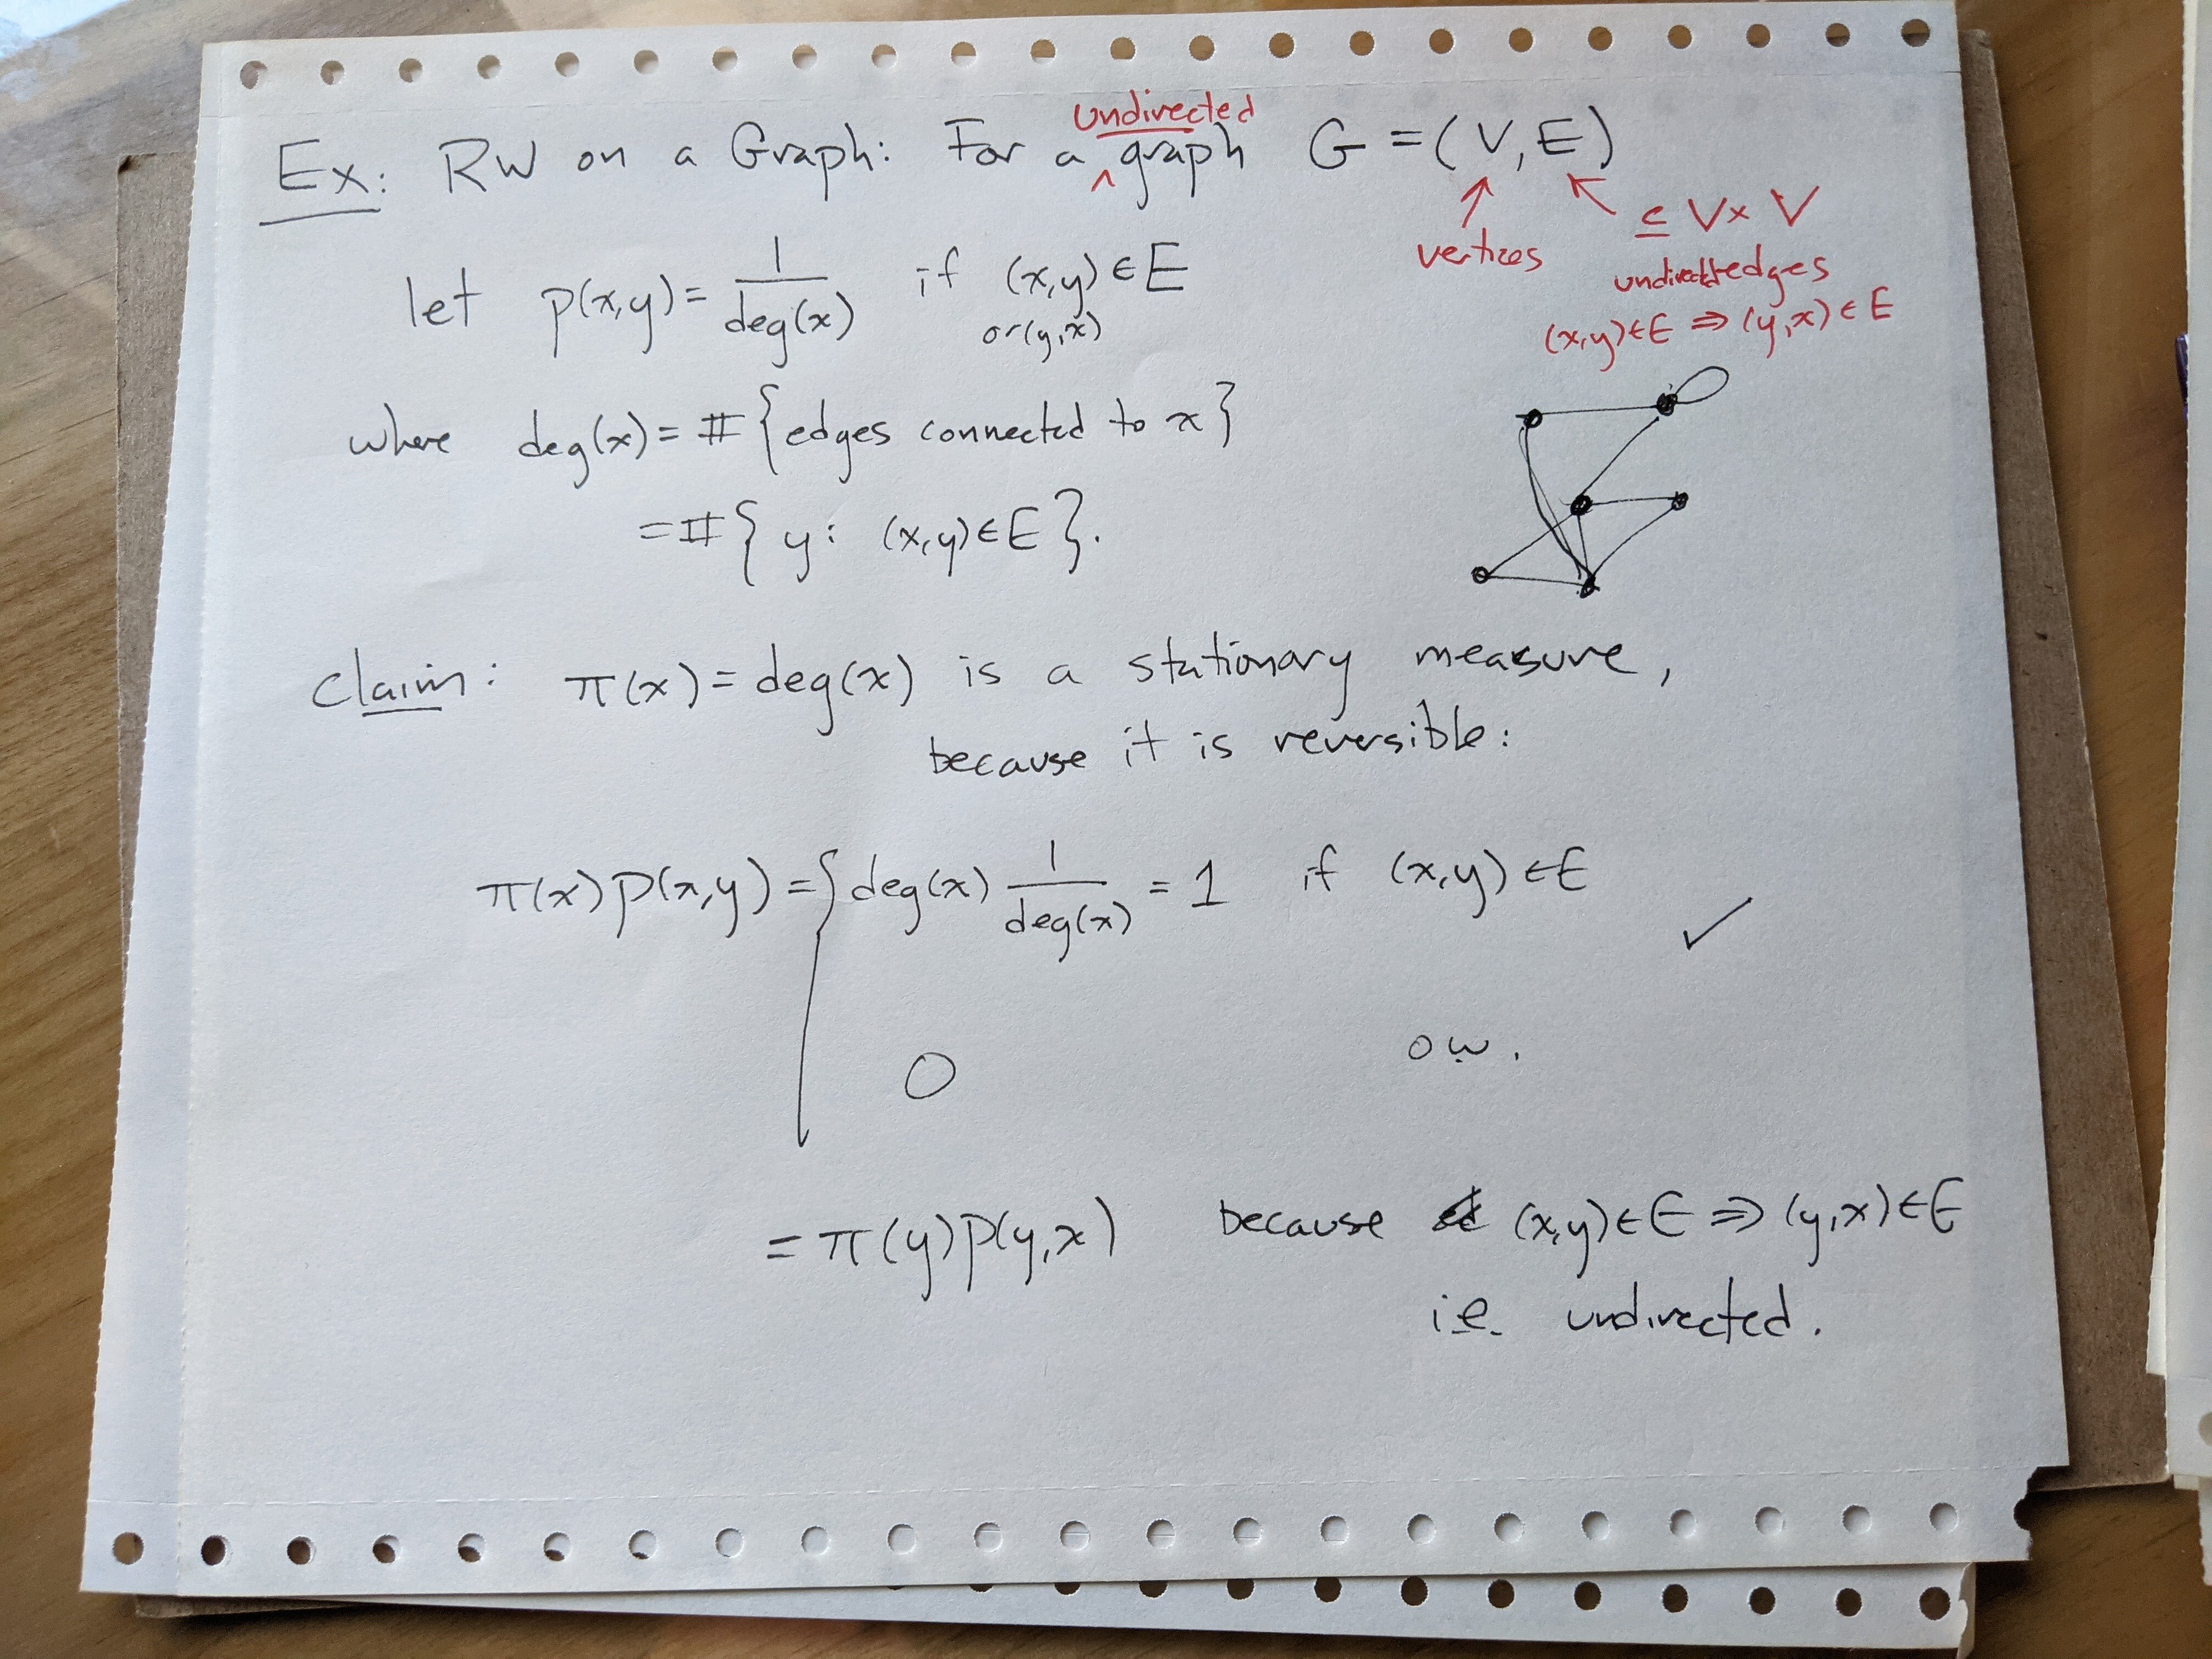 Ex: RW on a Graph: For a undirected graph G = (V, E)
vertices
⊆ V × V
undirected edges
(x,y) ∈ E ⇒ (y,x) ∈ E
let p(x,y) = 1/deg(x) if (x,y) ∈ E
or (y,x)
where deg(x) = #{edges connected to x}
= #{y: (x,y) ∈ E}.
Claim: π(x) = deg(x) is a stationary measure,
because it is reversible:
π(x) p(x,y) = { deg(x) 1/deg(x) = 1 if (x,y) ∈ E ✓
0 ow.
= π(y) p(y,x) because (x,y) ∈ E ⇒ (y,x) ∈ E
i.e. undirected.